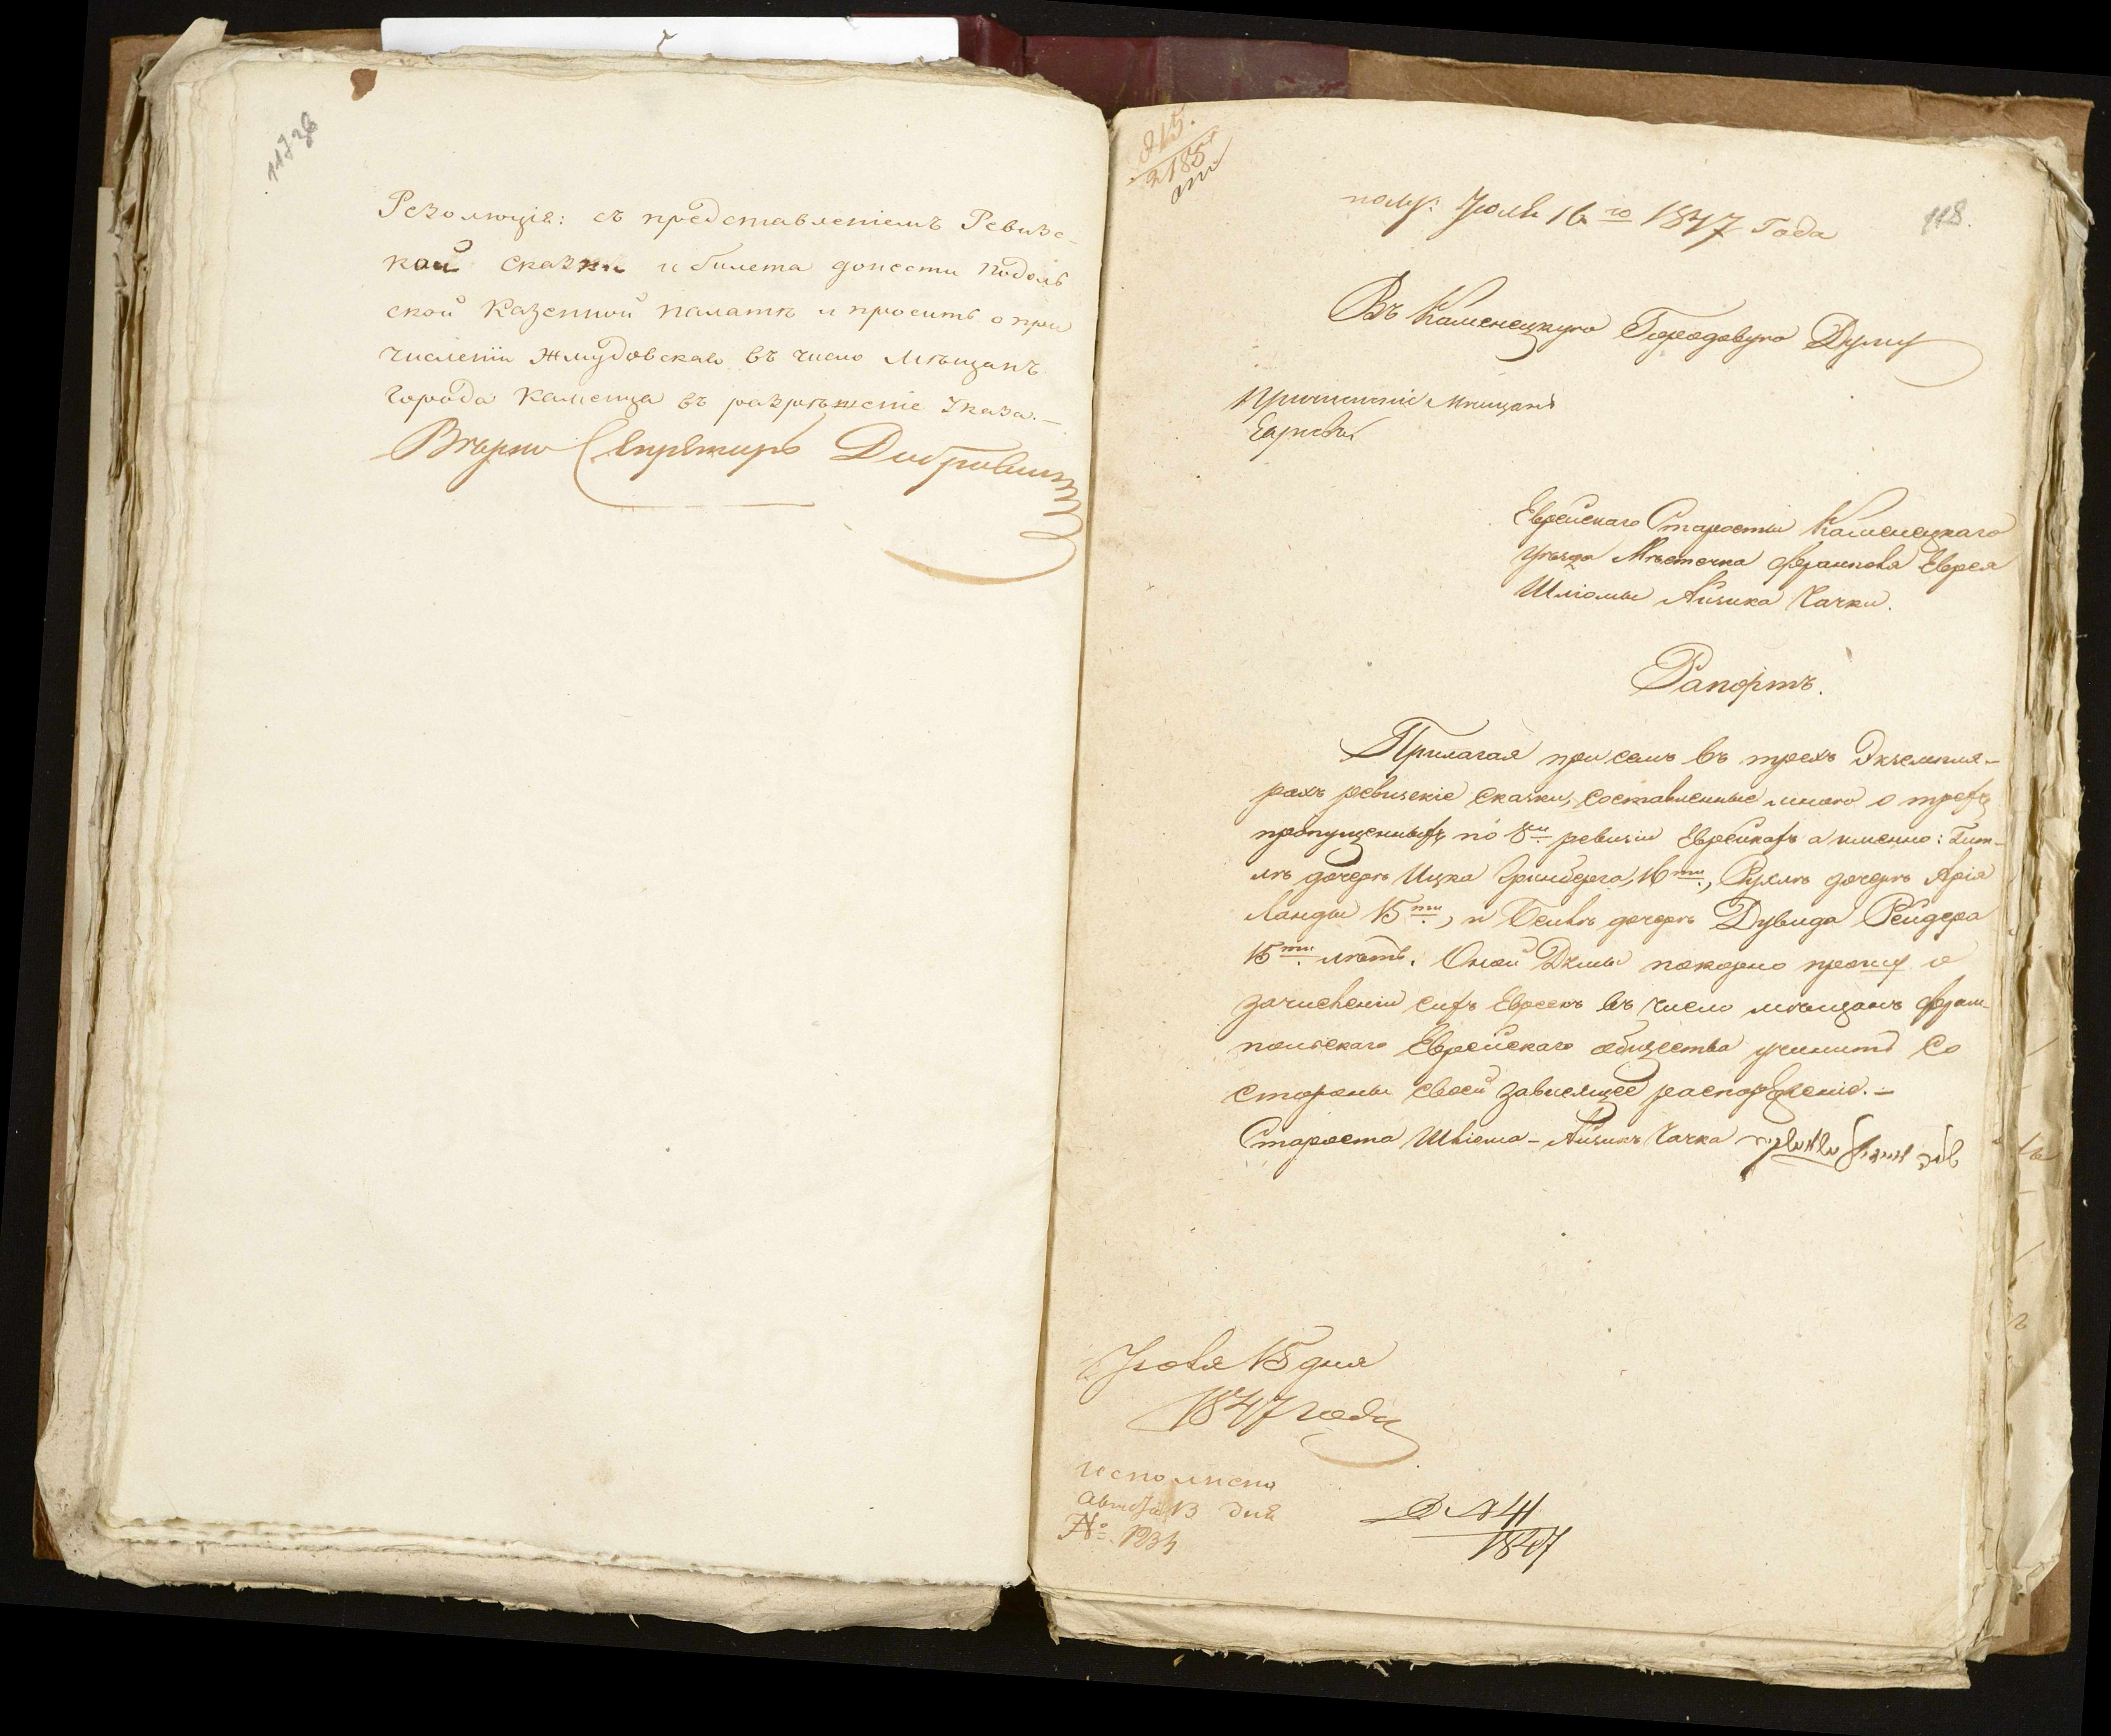 Резолюція: съ представленіемъ Ревизс-
кой сказки и билета донести Подоль
ской Казенной палатѣ и просить о при
численіи Жмудовскаго въ число Мѣщанъ
города Каменца въ разрѣшеніе Указа.—
Вѣрно Секретарь
118.
полу: Іюля 16го 1847 Года
Въ Каменецкую Городовую Думу
Еврейскаго Старосты Каменецкаго
уѣзда Мѣстечка Фрампола Еврея
Шліомы Айзика Чачки.
Рапортъ.
Прилагая при семъ въ трехъ Экземпля-
рахъ ревизскіе сказки, составленные мною о трехъ
пропущенныхъ по 8й ревизіи Еврейкахъ а именно: Гит-
лѣ дочерѣ Ицка Гринберга, 16ти, Рухлѣ дочерѣ Арія
Ланды 15ти, и Бейлѣ дочерѣ Дувида Рейдера
15ти лѣтъ. Оной Думы покорно прошу о
зачисленіи сихъ Евреекъ въ число мѣщанъ Фрам-
польскаго Еврейскаго общества учинить со
стороны своей зависящее распоряженіе.—
Староста Шліома-Айзикъ Чачка
Іюля 15 дня
1847 года
исполнено
Августа 13 дня
№ 1934
Д. № 41
1847